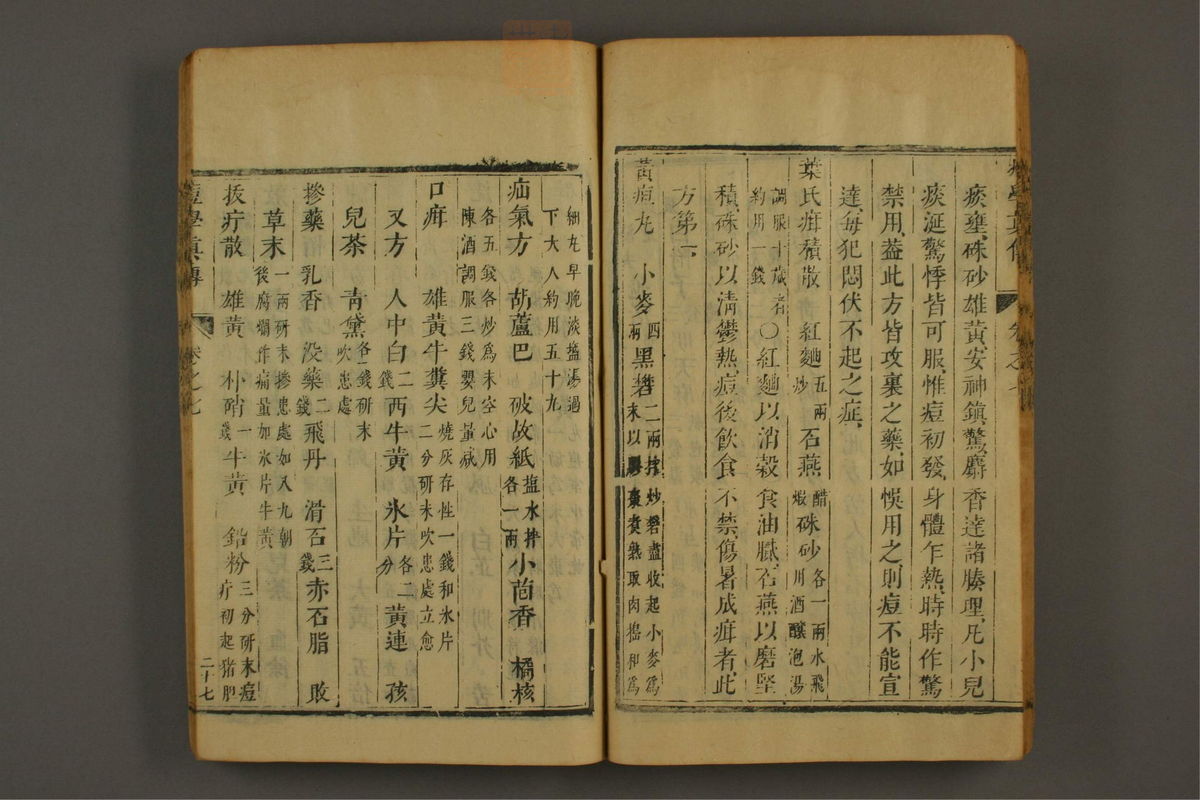 痰壅硃砂雄黃安神鎮驚麝香達諸腠理凡小兒
痰涎驚悸皆可服惟痘初發身體乍熱時時作驚
禁用蓋此方皆攻裏之藥如悞用之則痘不能宣
達每犯悶伏不起之症
葉氏疳積散 紅麯五兩炒 石燕醋煆 硃砂各一兩水飛用酒釀泡湯
調服十歲者約用一錢 〇紅麯以消穀食油膩石燕以磨堅
積硃砂以清鬱熱痘後飲食不禁傷暑成疳者此
方第一
黃疸丸 小麥四兩 黑礬二兩拌炒礬盡收起小麥為末以棗煑熟取肉搗和為
細丸早晚淡鹽湯過下大人約用五十九
疝氣方 葫蘆巴 破故紙鹽水拌各一兩 小茴香 橘核
各五錢各炒爲末空心用陳酒調服三錢嬰兒量減
口疳 雄黃牛糞尖燒灰存性一錢和氷片二分研末吹患處立愈
又方 人中白二錢 西牛黃 氷片各二分 黃連 孩
兒茶 青黛各一錢研末吹患處
摻藥 乳香 没藥二錢 飛丹 滑石三錢 赤石脂 敗
草末一兩研末摻患處如入九朝後腐爛作痛量加氷片牛黃
拔疔散 雄黃 朴硝一錢 牛黃 鉛粉三分研末痘疔初起猪胆
痘學眞傳 卷之七 二十七